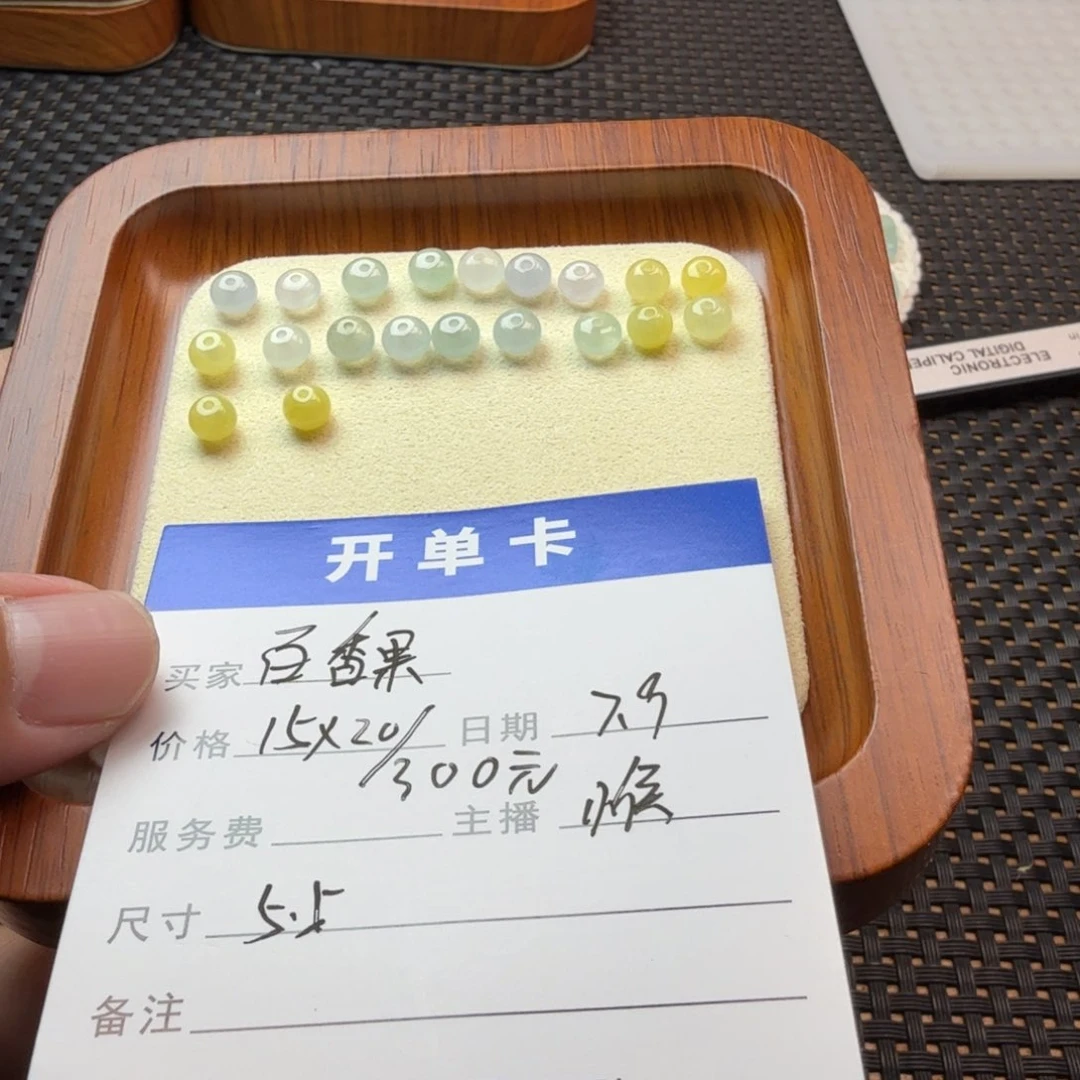 开单卡
买家 百香果
价格 15X20/ 日期 7.9
300元
服务费 主播 猴
尺寸 5.5
备注
ELECTRONIC
DIGITAL CALIPE